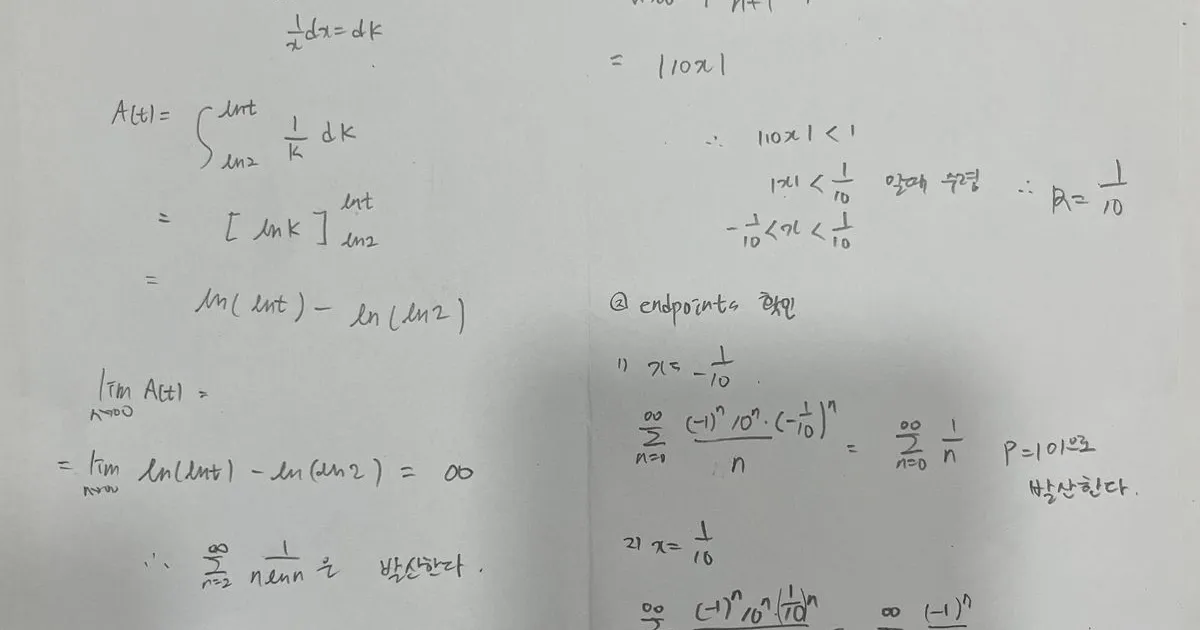 1/x dx = dk
A(t) = ∫_{ln2}^{lnt} 1/k dk
= [ lnk ]_{ln2}^{lnt}
= ln(lnt) - ln(ln2)
lim_{n→∞} A(t) =
= lim_{n→∞} ln(lnt) - ln(ln2) = ∞
∴ ∑_{n=2}^{∞} 1/(n lnn) 은 발산한다.
n+1
= |10x|
∴ |10x| < 1
|x| < 1/10 일때 수렴 ∴ R = 1/10
-1/10 < x < 1/10
② endpoints 확인
1) x = -1/10
∑_{n=0}^{∞} (-1)^n 10^n · (-1/10)^n / n = ∑_{n=0}^{∞} 1/n P=1이므로
발산한다.
2) x = 1/10
∞ (-1)^n 10^n · (1/10)^n ∞ (-1)^n